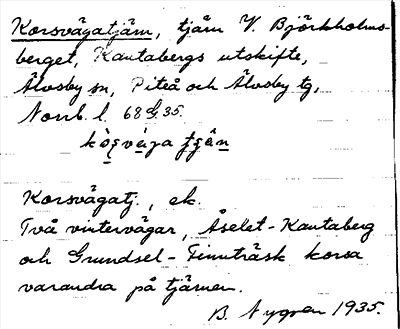 Korsvägatjärn, tjärn V. Björkholms-
berget, Kautabergs utskifte,
Älvsby sn, Piteå och Älvsby tg,
Norrb. l. 68 G 35.

Korsvägatj., ek.
Två vintervägar, Åselet-Kautaberg
och Grundsel-Finnträsk korsa
varandra på tjärnen.
B. Nygren 1935.